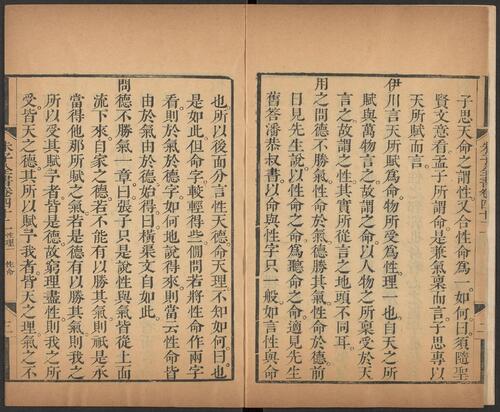 子思天命之謂性又合性命爲一如何曰須隨聖
賢文意看孟子所謂命是兼氣稟而言子思專以
天所賦而言
伊川言天所賦爲命物所受爲性理一也自天之所
賦與萬物言之故謂之命以人物之所稟受於天
言之故謂之性其實所從言之地頭不同耳
用之問德不勝氣性命於氣德勝其氣性命於德前
日見先生說以性命之命爲聽命之命適見先生
舊答潘恭叔書以命與性字只一般如言性與命
也所以後面分言性天德命天理不知如何曰也
是如此但命字較輕得些僩問若將性命作兩字
看則於氣於德字如何地說得來則當云性命皆
由於氣由於德始得曰橫渠文自如此
問德不勝氣一章曰張子只是說性與氣皆從上面
流下來自家之德若不能有以勝其氣則祇是承
當得他那所賦之氣若是德有以勝其氣則我之
所以受其賦予者皆是德故窮理盡性則我之所
受皆天之德其所以賦予我者皆天之理氣之不
朱子全書卷四十二
性理
性命
三